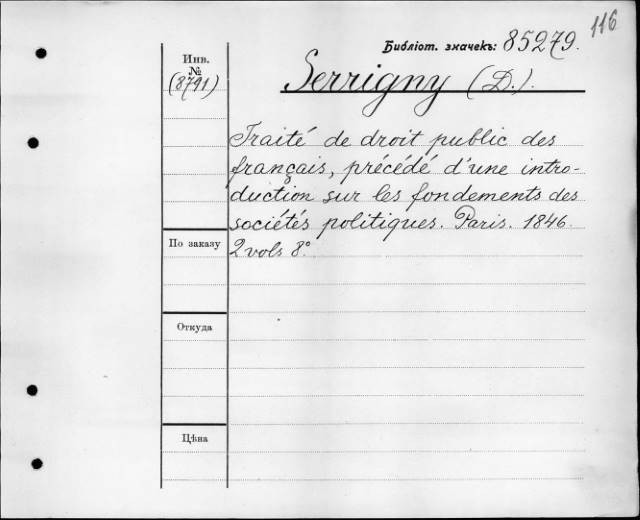 116
Библіот. значекъ: 85279.
Инв.
№
(8791)
Serrigny (D.).
Traité de droit public des
français, précédé d'une intro-
duction sur les fondements des
sociétés politiques. Paris. 1846.
2 vols 8°.
По заказу
Откуда
Цѣна